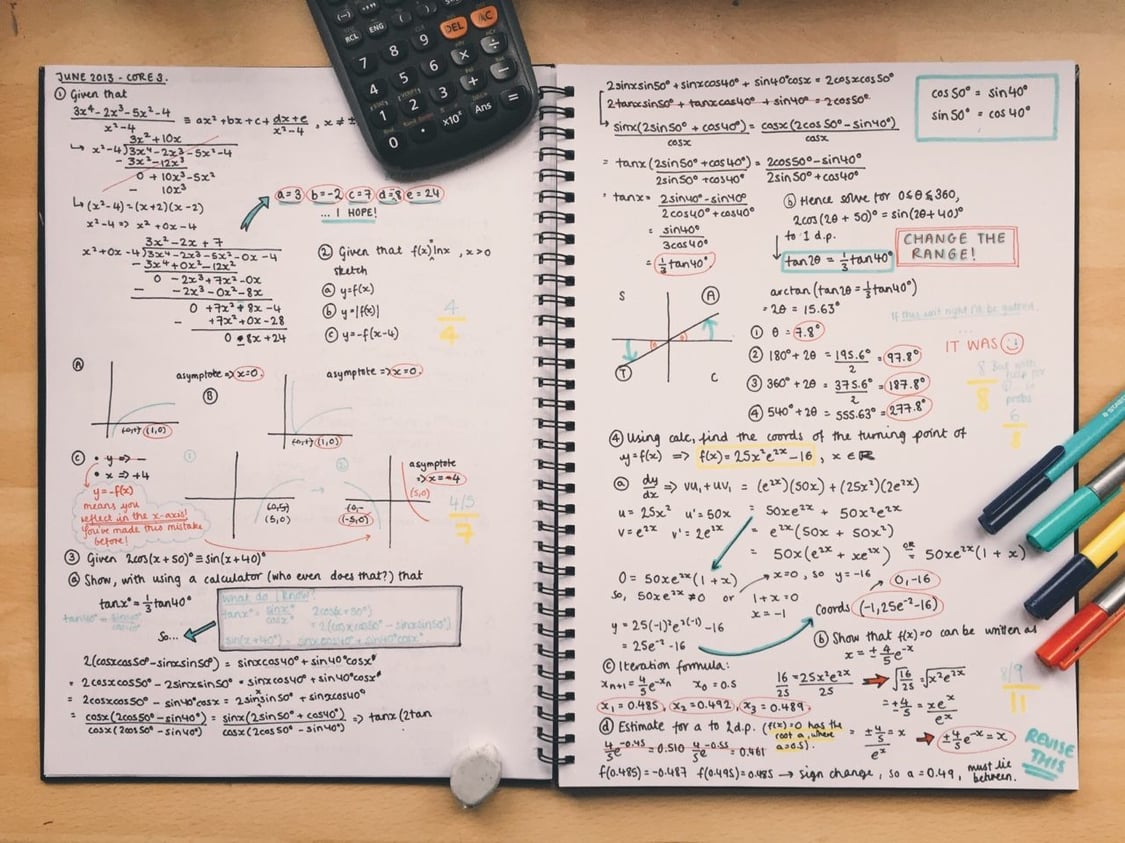 JUNE 2013 - CORE 3.
① Given that
3x⁴-2x³-5x²-4 / x²-4 ≡ ax²+bx+c+ dx+e / x²-4 , x ≠ ±
3x²+10x
↳ x²-4)3x⁴-2x³-5x²-4
- 3x²-12x³
0 + 10x³-5x²
- 10x³
↳(x²-4)=(x+2)(x-2)
x²-4 => x²+0x-4
a=3 b=-2 c=7 d=8 e=24
... I HOPE!
3x²-2x+7
x²+0x-4)3x⁴-2x³-5x²-0x-4
- 3x⁴+0x³-12x²
0 -2x³+7x²-0x
- -2x³-0x²-8x
0 +7x²+8x-4
- +7x²+0x-28
0 8x+24
② Given that f(x)=lnx , x>0
sketch
ⓐ y=f(x)
ⓑ y=|f(x)|
ⓒ y=-f(x-4)
4/4
Ⓐ
asymptote => x=0.
(1,0)
Ⓑ
asymptote => x=0.
(1,0)
ⓒ • y => -
• x => +4
y=-f(x)
means you
reflect in the x-axis!
You've made this mistake
before!
①
(5,0)
②
(-5,0)
asymptote
=> x=+4
(5,0)
4/5
7
③ Given 2cos(x+50)°≡sin(x+40)°
ⓐ Show, with using a calculator (who even does that?) that
tanx°=⅓tan40°
tan40°= sin40°/cos40°
So...
What do I know?
tanx°= sinx°/cosx° 2cos(x+50°)
=2(cosxcos50°-sinxsin50°)
sin(x+40°)= sinxcos40°+sin40°cosx°
2(cosxcos50°-sinxsin50°) = sinxcos40°+sin40°cosx°
= 2cosxcos50°-2sinxsin50° = sinxcos40°+sin40°cosx°
= 2cosxcos50°-sin40°cosx = 2sinxsin50°+sinxcos40°
= cosx(2cos50°-sin40°) / cosx(2cos50°-sin40°) = sinx(2sin50°+cos40°) / cosx(2cos50°-sin40°) => tanx(2tan
RCL ENG ( ) DEL AC
7 8 9 ÷
4 5 6 × −
1 2 3 +
0 • ×10ˣ Ans =
2sinxsin50°+sinxcos40°+sin40°cosx=2cosxcos50°
2tanxsin50°+tanxcos40°+sin40°=2cos50°
↳ sinx(2sin50°+cos40°) / cosx = cosx(2cos50°-sin40°) / cosx
= tanx(2sin50°+cos40°) / 2sin50°+cos40° = 2cos50°-sin40° / 2sin50°+cos40°
cos50° = sin40°
sin50° = cos40°
tanx= 2sin40°-sin40° / 2cos40°+cos40°
= sin40° / 3cos40°
= ⅓tan40°
ⓑ Hence solve for 0≤θ≤360,
2cos(2θ+50)°=sin(2θ+40)°
to 1 d.p.
tan2θ=⅓tan40°
CHANGE THE
RANGE!
S Ⓐ
Ⓣ C
arctan(tan2θ=⅓tan40°)
= 2θ = 15.63°
① θ = 7.8°
② 180°+2θ = 195.6°/2 = 97.8°
③ 360°+2θ = 375.6°/2 = 187.8°
④ 540°+2θ = 555.63° = 277.8°
...
IT WAS
8
8
6
8
④ Using calc, find the coords of the turning point of
y=f(x) => f(x)=25x²e²ˣ-16 , x∈ℝ
ⓐ dy/dx => vu₁+uv₁ = (e²ˣ)(50x)+(25x²)(2e²ˣ)
u=25x² u'=50x = 50xe²ˣ + 50x²e²ˣ
v=e²ˣ v'=2e²ˣ = e²ˣ(50x+50x²)
= 50x(e²ˣ+xe²ˣ) OR = 50xe²ˣ(1+x)
0=50xe²ˣ(1+x) → x=0, so y=-16 → 0,-16
so, 50xe²ˣ≠0 or 1+x=0
x=-1
Coords (-1,25e⁻²-16)
y=25(-1)²e²⁽⁻¹⁾-16
= 25e⁻²-16
ⓑ Show that f(x)=0 can be written as
x=±⅘e⁻ˣ
16/25 = 25x²e²ˣ/25 → √16/25 = √x²e²ˣ
= ±⅘ = xeˣ/eˣ
= ±⅘/eˣ = x → ±⅘e⁻ˣ=x
ⓒ Iteration formula:
xₙ₊₁=⅘e⁻ˣⁿ x₀=0.5
x₁=0.485, x₂=0.492, x₃=0.489.
8/9
11
ⓓ Estimate for a to 2d.p. (f(x)=0 has the
root a, where
a=0.5).
⅘e⁻⁰·⁴⁵=0.510 ⅘e⁻⁰·⁵⁵=0.461
f(0.485)=-0.487 f(0.495)=0.485 → sign change, so a=0.49, must lie
between.
REVISE
THIS